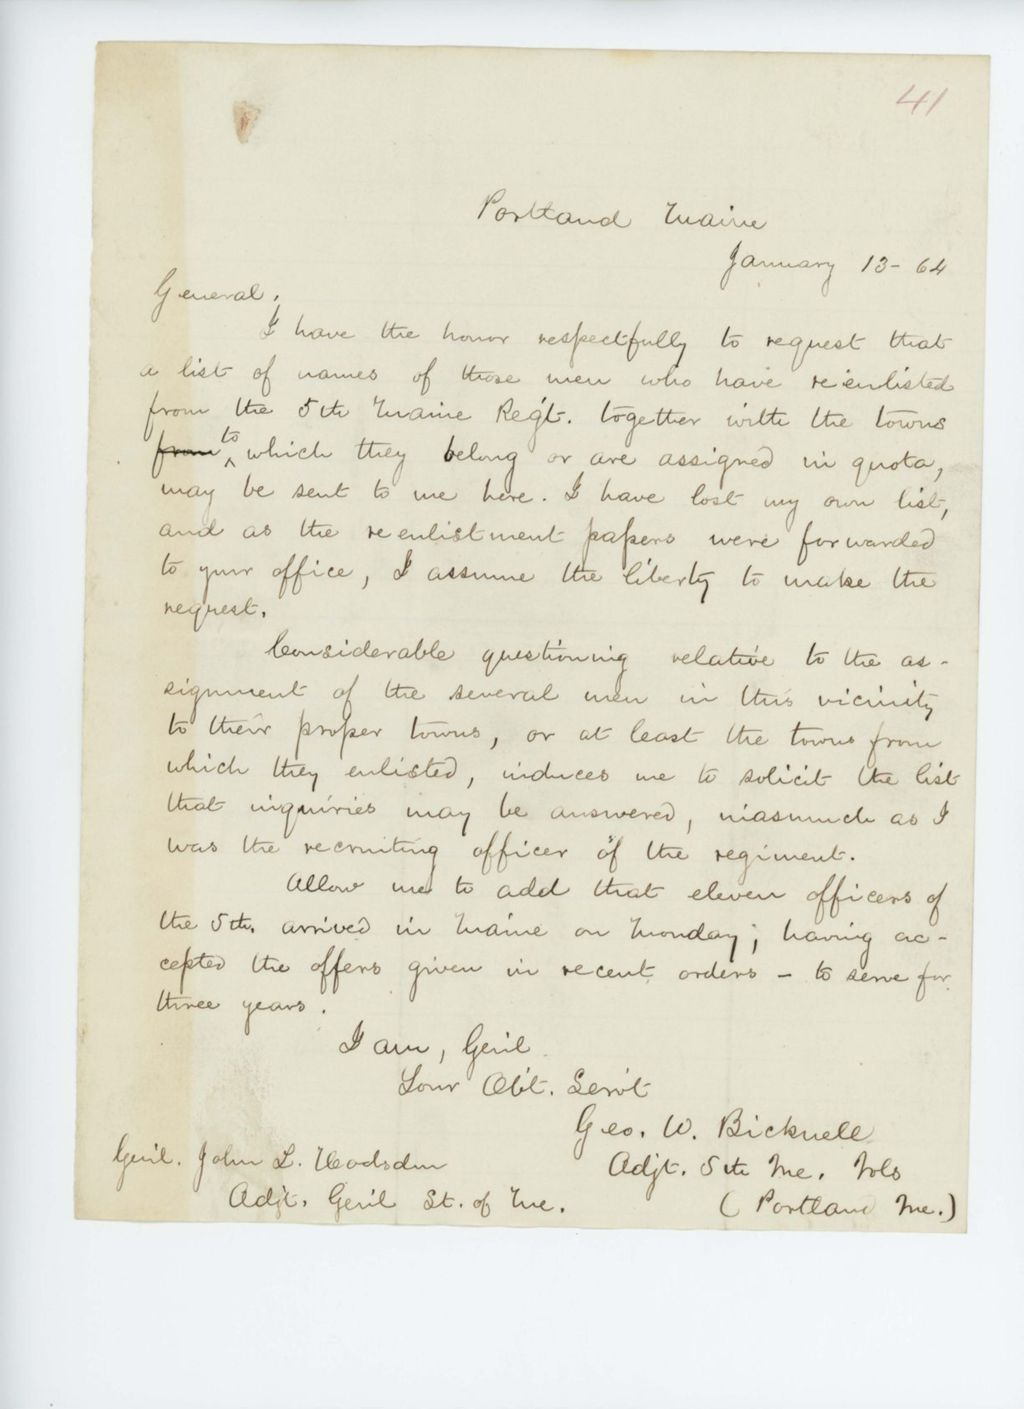 41
Portland Maine
January 13 - 64
General,
I have the honor respectfully to request that
a list of names of those men who have reenlisted
from the 5th Maine Reg't. together with the towns
from to which they belong or are assigned in quota,
may be sent to me here. I have lost my own list,
and as the reenlistment papers were forwarded
to your office, I assume the liberty to make the
request.
Considerable questioning relative to the as-
signment of the several men in this vicinity
to their proper towns, or at least the towns from
which they enlisted, induces me to solicit the list
that inquiries may be answered, inasmuch as I
was the recruiting officer of the regiment.
Allow me to add that eleven officers of
the 5th. arrived in Maine on Monday; having ac-
cepted the offers given in recent orders - to serve for
three years.
I am, Gen'l
Your Obt. Serv't
Geo. W. Bicknell
Gen'l. John L. Hodsdon
Adjt. 5th Me. Vols
Adjt. Gen'l St. of Me.
(Portland Me.)